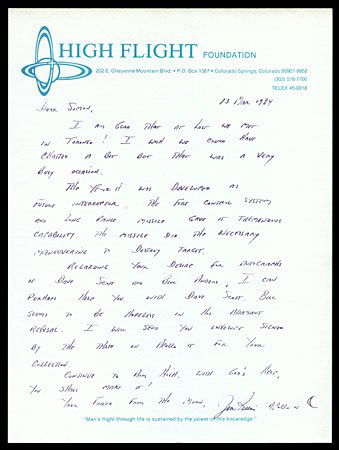 HIGH FLIGHT FOUNDATION
202 E. Cheyenne Mountain Blvd. • P.O. Box 1387 • Colorado Springs, Colorado 80901-9958
(303) 576-7700
TELEX 45-0618
13 Mar 1984
Dear Simon,
I am glad that at last we met
in Toronto! I wish we could have
chatted a bit but that was a very
busy occasion.
The was developed as
future interceptor. The fire control system
and long range missile gave it tremendous
capability. The missile did the necessary
maneuvering to destroy target.
Regarding your desire for autographs
of Dave Scott and Bill Anders, I can
perhaps help you with Dave Scott. Bill
seems to be in his adamant
refusal. I will send you envelope signed
by the three on Apollo 15 for your
collection.
Continue to aim high. With God's help,
you shall make it!
Your friend from the moon, Jim Irwin Apollo 15
"Man's flight through life is sustained by the power of his knowledge."